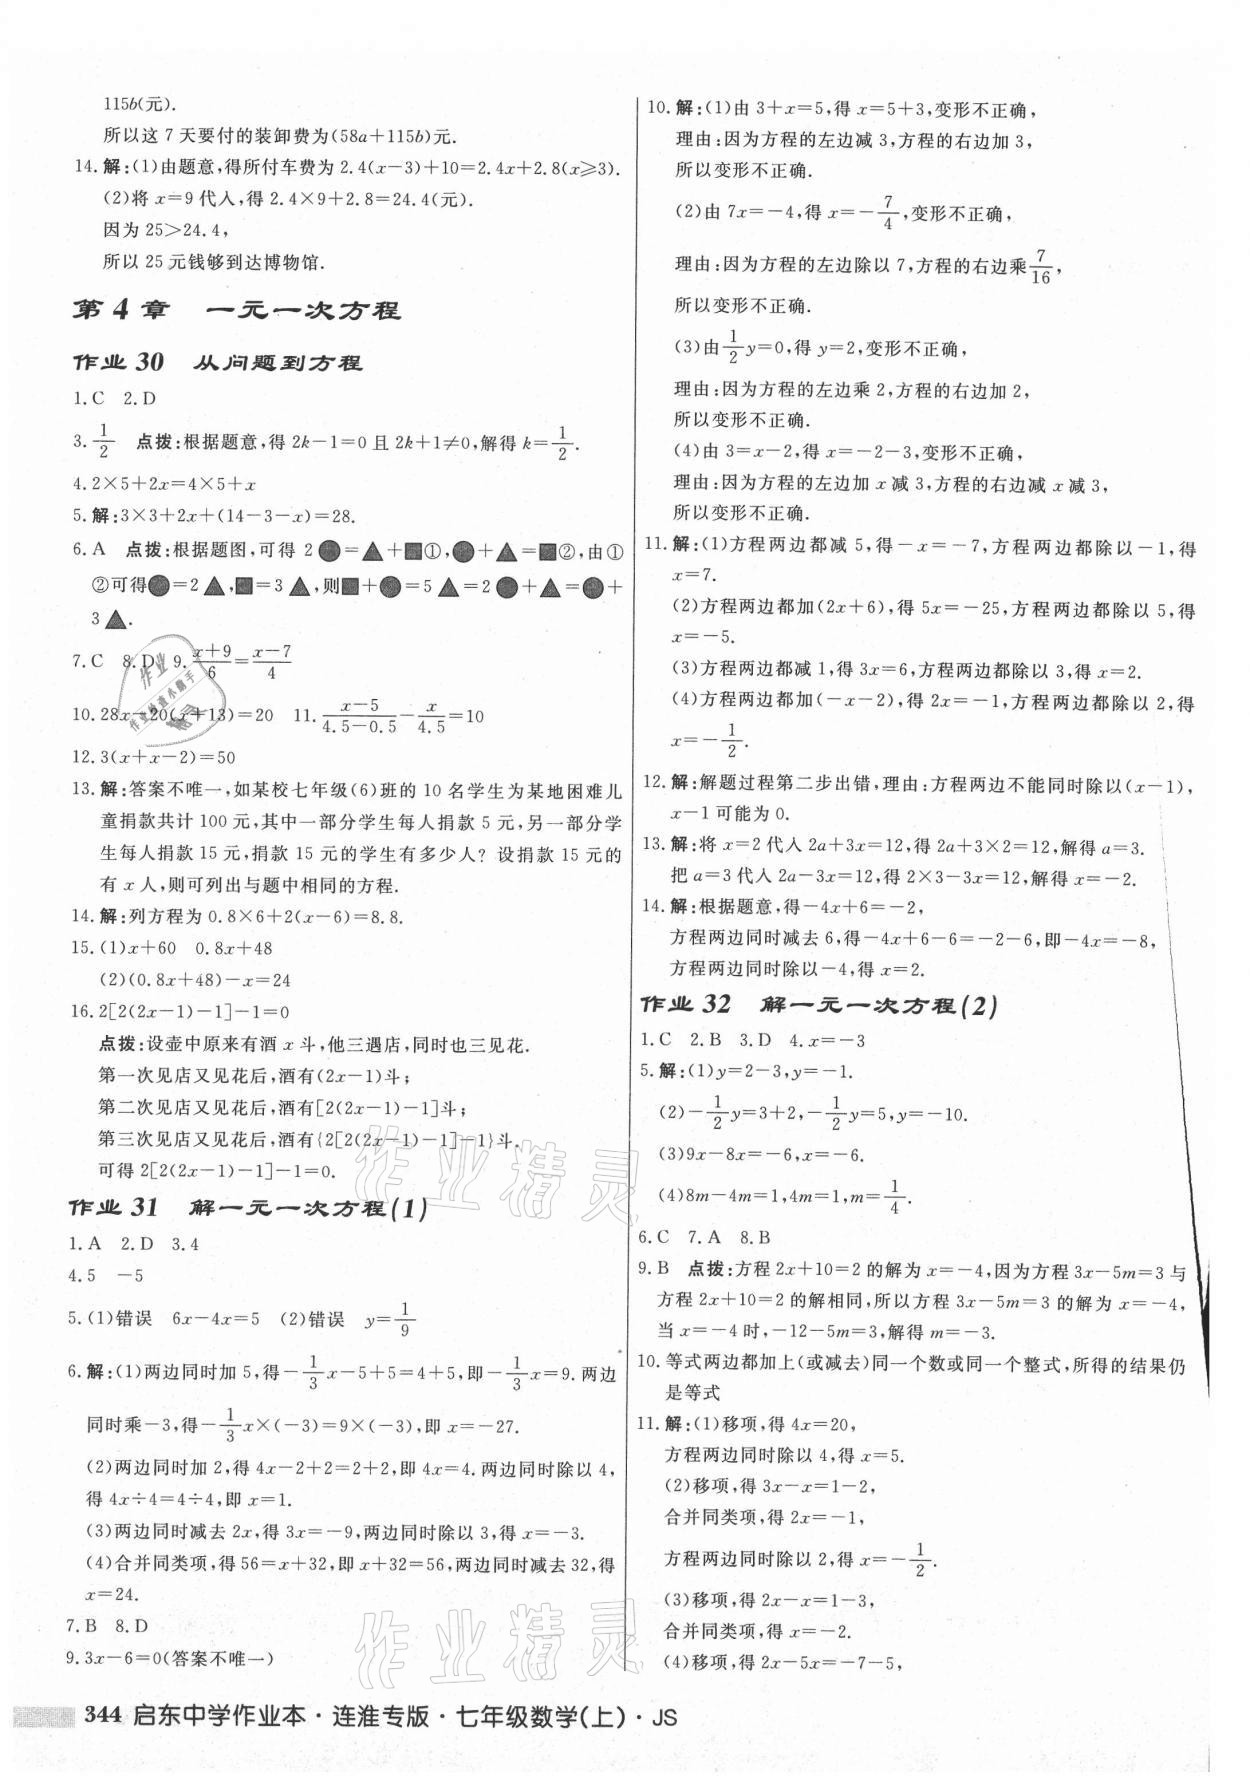 115b(元).
所以这 7 天要付的装卸费为(58a+115b)元.
14.解:(1)由题意,得所付车费为 2.4(x-3)+10=2.4x+2.8(x≥3).
(2)将 x=9 代入,得 2.4×9+2.8=24.4(元).
因为 25>24.4,
所以 25 元钱够到达博物馆.
第 4 章 一元一次方程
作业 30 从问题到方程
1.C 2.D
3.1/2 点拨:根据题意,得 2k-1=0 且 2k+1≠0,解得 k=1/2.
4.2×5+2x=4×5+x
5.解:3×3+2x+(14-3-x)=28.
6.A 点拨:根据题图,可得 2●=▲+■①,●+▲=■②,由①
②可得●=2▲,■=3▲,则■+●=5▲=2●+▲=●+
3▲.
7.C 8.D 9.(x+9)/6=(x-7)/4
10.28x-20(x+13)=20 11.(x-5)/(4.5-0.5)-x/4.5=10
12.3(x+x-2)=50
13.解:答案不唯一,如某校七年级(6)班的 10 名学生为某地困难儿
童捐款共计 100 元,其中一部分学生每人捐款 5 元,另一部分学
生每人捐款 15 元,捐款 15 元的学生有多少人?设捐款 15 元的
有 x 人,则可列出与题中相同的方程.
14.解:列方程为 0.8×6+2(x-6)=8.8.
15.(1)x+60 0.8x+48
(2)(0.8x+48)-x=24
16.2[2(2x-1)-1]-1=0
点拨:设壶中原来有酒 x 斗,他三遇店,同时也三见花.
第一次见店又见花后,酒有(2x-1)斗;
第二次见店又见花后,酒有[2(2x-1)-1]斗;
第三次见店又见花后,酒有{2[2(2x-1)-1]-1}斗.
可得 2[2(2x-1)-1]-1=0.
作业 31 解一元一次方程(1)
1.A 2.D 3.4
4.5 -5
5.(1)错误 6x-4x=5 (2)错误 y=1/9
6.解:(1)两边同时加 5,得-1/3x-5+5=4+5,即-1/3x=9.两边
同时乘-3,得-1/3x×(-3)=9×(-3),即 x=-27.
(2)两边同时加 2,得 4x-2+2=2+2,即 4x=4.两边同时除以 4,
得 4x÷4=4÷4,即 x=1.
(3)两边同时减去 2x,得 3x=-9,两边同时除以 3,得 x=-3.
(4)合并同类项,得 56=x+32,即 x+32=56,两边同时减去 32,得
x=24.
7.B 8.D
9.3x-6=0(答案不唯一)
10.解:(1)由 3+x=5,得 x=5+3,变形不正确,
理由:因为方程的左边减 3,方程的右边加 3,
所以变形不正确.
(2)由 7x=-4,得 x=-7/4,变形不正确,
理由:因为方程的左边除以 7,方程的右边乘7/16,
所以变形不正确.
(3)由1/2y=0,得 y=2,变形不正确,
理由:因为方程的左边乘 2,方程的右边加 2,
所以变形不正确.
(4)由 3=x-2,得 x=-2-3,变形不正确,
理由:因为方程的左边加 x 减 3,方程的右边减 x 减 3,
所以变形不正确.
11.解:(1)方程两边都减 5,得-x=-7,方程两边都除以-1,得
x=7.
(2)方程两边都加(2x+6),得 5x=-25,方程两边都除以 5,得
x=-5.
(3)方程两边都减 1,得 3x=6,方程两边都除以 3,得 x=2.
(4)方程两边都加(-x-2),得 2x=-1,方程两边都除以 2,得
x=-1/2.
12.解:解题过程第二步出错,理由:方程两边不能同时除以(x-1),
x-1 可能为 0.
13.解:将 x=2 代入 2a+3x=12,得 2a+3×2=12,解得 a=3.
把 a=3 代入 2a-3x=12,得 2×3-3x=12,解得 x=-2.
14.解:根据题意,得-4x+6=-2,
方程两边同时减去 6,得-4x+6-6=-2-6,即-4x=-8,
方程两边同时除以-4,得 x=2.
作业 32 解一元一次方程(2)
1.C 2.B 3.D 4.x=-3
5.解:(1)y=2-3,y=-1.
(2)-1/2y=3+2,-1/2y=5,y=-10.
(3)9x-8x=-6,x=-6.
(4)8m-4m=1,4m=1,m=1/4.
6.C 7.A 8.B
9.B 点拨:方程 2x+10=2 的解为 x=-4,因为方程 3x-5m=3 与
方程 2x+10=2 的解相同,所以方程 3x-5m=3 的解为 x=-4,
当 x=-4 时,-12-5m=3,解得 m=-3.
10.等式两边都加上(或减去)同一个数或同一个整式,所得的结果仍
是等式
11.解:(1)移项,得 4x=20,
方程两边同时除以 4,得 x=5.
(2)移项,得 3x-x=1-2,
合并同类项,得 2x=-1,
方程两边同时除以 2,得 x=-1/2.
(3)移项,得 2x-x=1-3,
合并同类项,得 x=-2.
(4)移项,得 2x-5x=-7-5,
344 启东中学作业本·连淮专版·七年级数学(上)·JS
作业精灵
作业精灵
作业
作业检查小助手